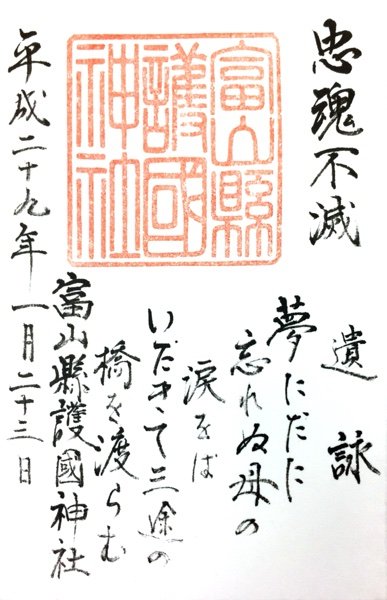 忠魂不滅
遺詠
夢にだに
忘れぬ母の
涙をば
いだきて三途の
橋を渡らむ
富山縣
護國
神社
富山縣護國神社
平成二十九年一月二十三日